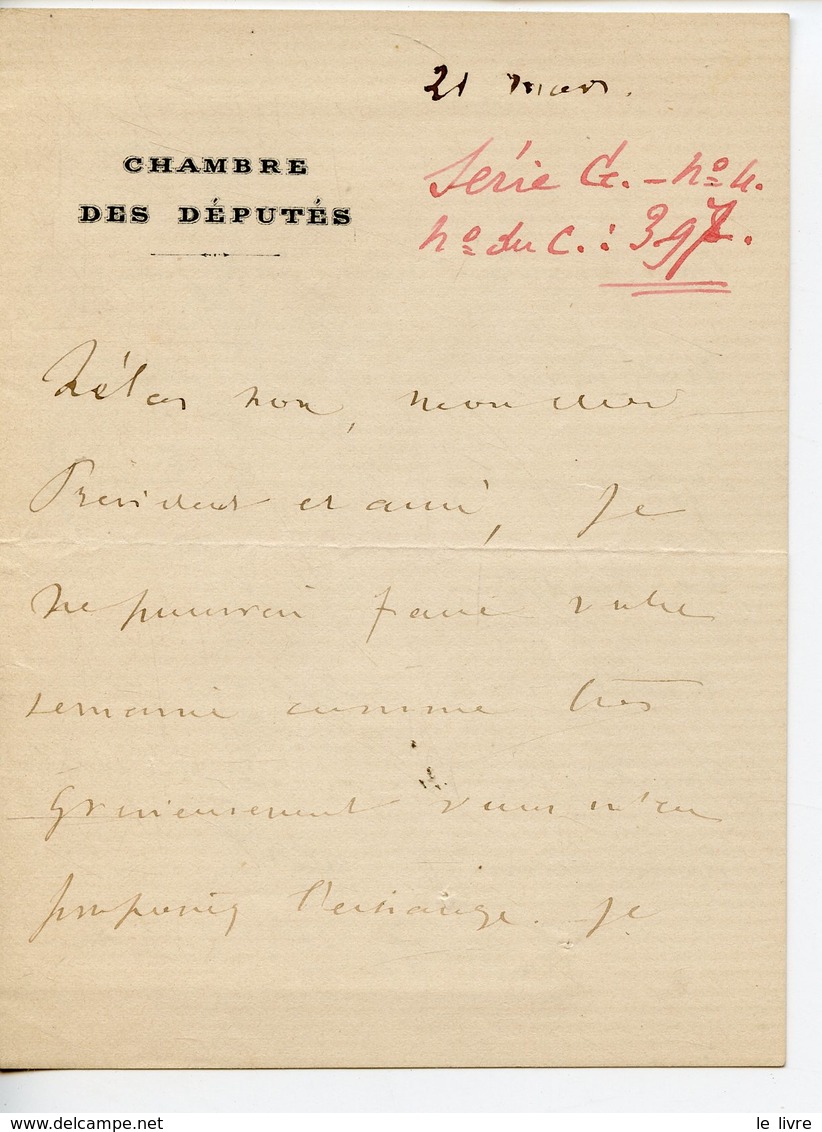 21 mars.
CHAMBRE
DES DÉPUTÉS
Série G. - No 4.
No du C. : 397.
Hélas non, mon cher
Président et ami, je
ne pourrai faire votre
semaine comme très
gracieusement vous m'en
proposiez l'échange. Je
le livre
www.delcampe.net